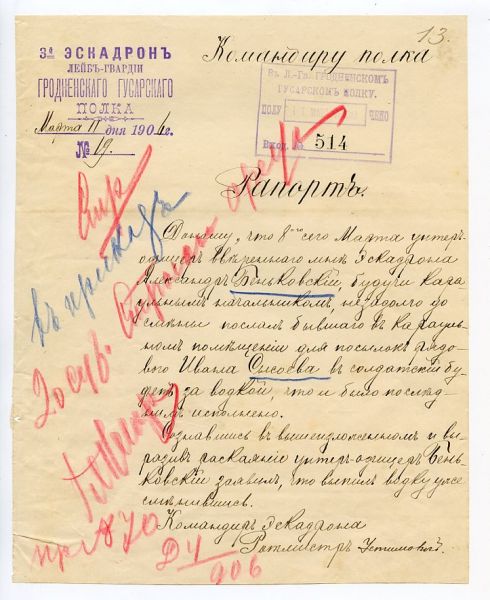 13.
3й ЭСКАДРОНЪ
ЛЕЙБЪ-ГВАРДІИ
ГРОДНЕНСКАГО ГУСАРСКАГО
ПОЛКА
Марта 11 дня 1906 г.
№ 19.
Командиру полка
Въ Л.-Гв. ГРОДНЕНСКОМЪ
ГУСАРСКОМЪ ПОЛКУ.
ПОЛУ ЧЕНО
Вход. № 514
Рапортъ.
Доношу, что 8го сего Марта унтеръ-
офицеръ ввѣреннаго мнѣ Эскадрона
Александръ Беньковскій, будучи кара
ульнымъ начальникомъ, не задолго до
смѣны послалъ бывшаго въ караулъ-
номъ помѣщеніи для посылокъ рядо-
вого Ивана Сысоева въ солдатскій бу-
фетъ за водкой, что и было послѣд-
нимъ исполнено.
Сознавшись въ вышеизложенномъ и вы-
разивъ раскаяніе унтеръ-офицеръ Бень-
ковскій заявилъ, что выпилъ водку уже
смѣнившись.
Командиръ Эскадрона
Ротмистръ Устимовичъ.
въ приказъ
20 сут.
пр. № 70
906